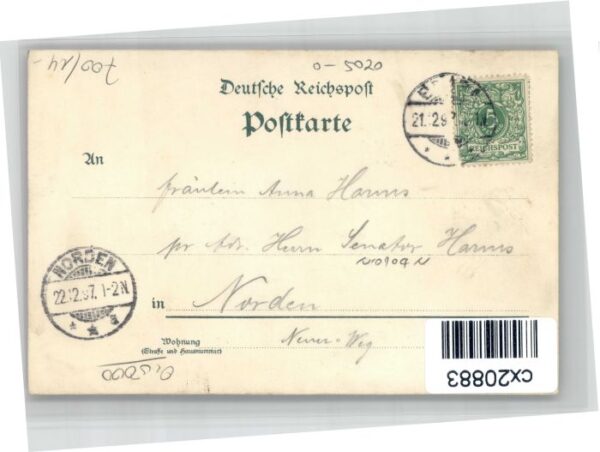 700/14-
0-5020
Deutsche Reichspost
Postkarte
21.12.97
5
REICHSPOST
An
Fräulein Anna Harms
pr Adr. Herrn Senator Harms
in Norden
NORDEN
22.12.97. 1-2N.
Wohnung
(Straße und Hausnummer)
Neuer-Weg
cx20883